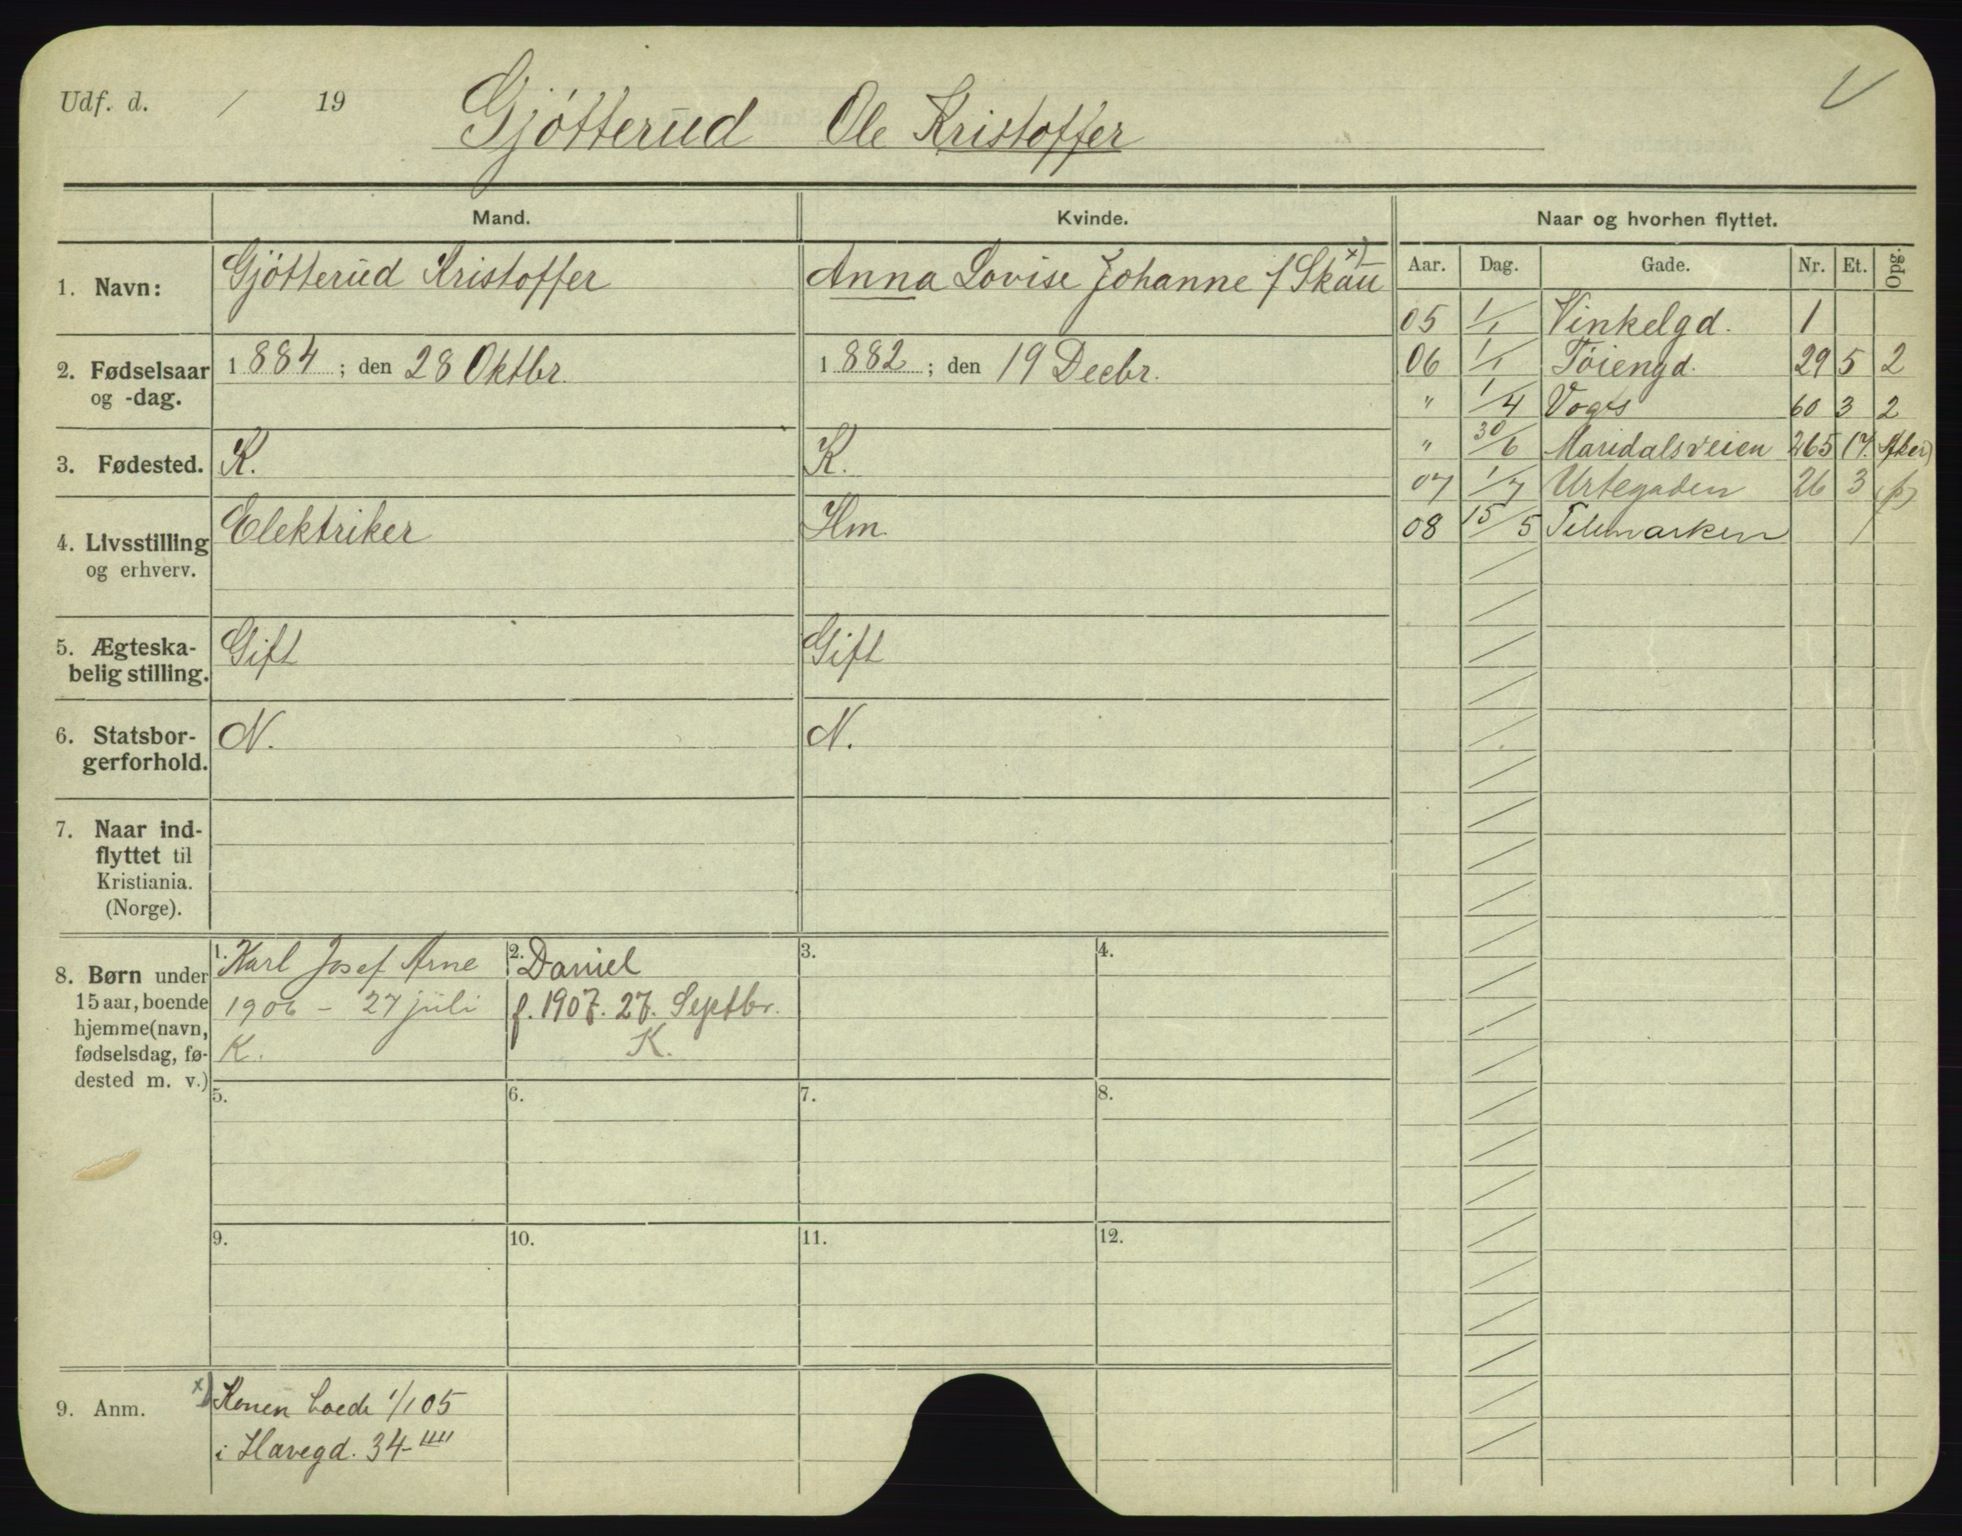 Udf. d. / 19 Gjótterŭd Ole Kristoffer
Mand. Kvinde. Naar og hvorhen flyttet.
Aar. Dag. Gade. Nr. Et. Opg.
1. Navn: Gjótterŭd Kristoffer Anna Lovise Johanne f Skaŭ x)
2. Fødselsaar
og -dag. 1884; den 28 Oktbr. 1882; den 19 Decbr.
3. Fødested. K. K.
4. Livsstilling
og erhverv. Elektriker Hm
5. Ægteska-
belig stilling. Gift Gift
6. Statsbor-
gerforhold. N. N.
7. Naar ind-
flyttet til
Kristiania.
(Norge).
05 1/1 Vinkelgd. 1
06 1/1 Tóiengd. 29 5 2
" 1/4 Vogts 60 3 2
" 30/6 Maridalsveien 265 (Aker)
07 1/7 Urtegaden 26 3
08 15/5 Telemarken /
8. Børn under
15 aar, boende
hjemme (navn,
fødselsdag, fø-
dested m. v.)
1. Karl Josef Arne
1906 - 27 juli
K.
2. Daniel
f. 1907. 27. Septbr.
K.
3.
4.
5.
6.
7.
8.
9.
10.
11.
12.
9. Anm. x) Konen boede 1/1 05
i Havegd. 34-""